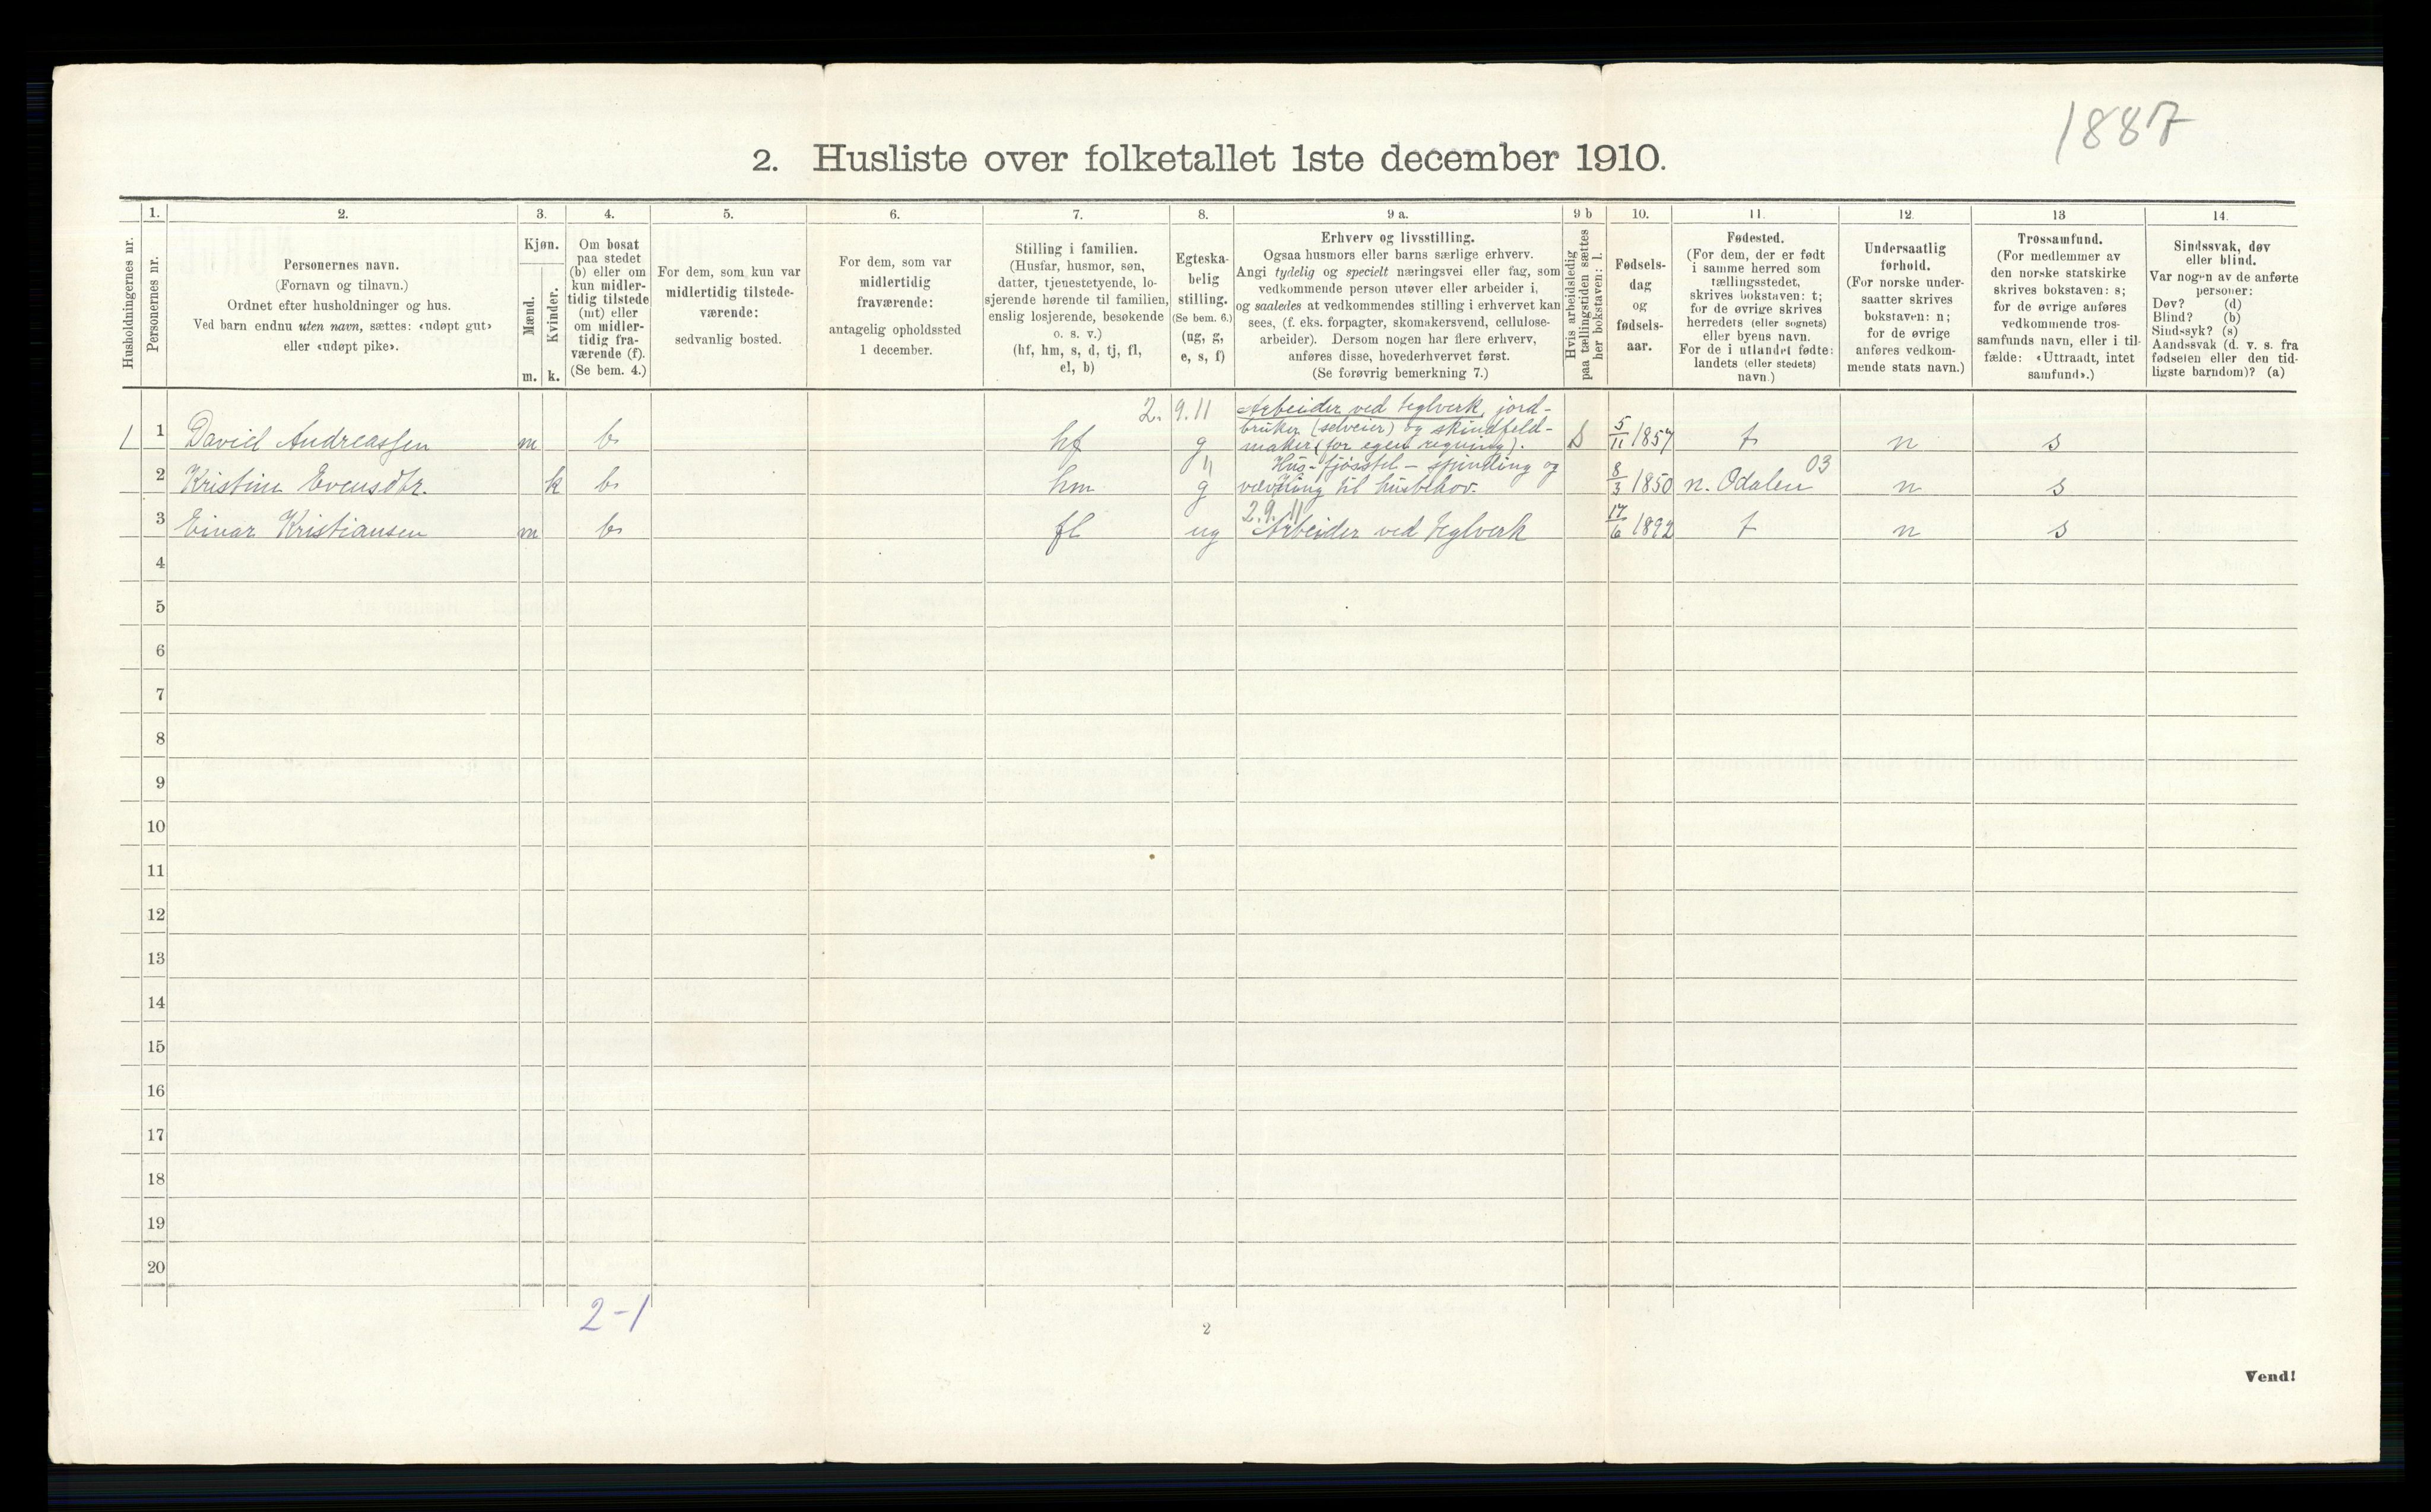 1887
2. Husliste over folketallet 1ste december 1910.
Husholdningernes nr.
1.
Personernes nr.
2.
Personernes navn.
(Fornavn og tilnavn.)
Ordnet efter husholdninger og hus.
Ved barn endnu uten navn, sættes: «udøpt gut»
eller «udøpt pike».
3.
Kjøn.
Mænd.
Kvinder.
m. k.
4.
Om bosat
paa stedet
(b) eller om
kun midler-
tidig tilstede
(mt) eller
om midler-
tidig fra-
værende (f).
(Se bem. 4.)
5.
For dem, som kun var
midlertidig tilstede-
værende:
sedvanlig bosted.
6.
For dem, som var
midlertidig
fraværende:
antagelig opholdssted
1 december.
7.
Stilling i familien.
(Husfar, husmor, søn,
datter, tjenestetyende, lo-
sjerende hørende til familien,
enslig losjerende, besøkende
o. s. v.)
(hf, hm, s, d, tj, fl,
el, b)
8.
Egteska-
belig
stilling.
(Se bem. 6.)
(ug, g,
e, s, f)
9 a.
Erhverv og livsstilling.
Ogsaa husmors eller barns særlige erhverv.
Angi tydelig og specielt næringsvei eller fag, som
vedkommende person utøver eller arbeider i,
og saaledes at vedkommendes stilling i erhvervet kan
sees, (f. eks. forpagter, skomakersvend, cellulose-
arbeider). Dersom nogen har flere erhverv,
anføres disse, hovederhvervet først.
(Se forøvrig bemerkning 7.)
9 b
Hvis arbeidsledig
paa tællingstiden sættes
her bokstaven: l.
10.
Fødsels-
dag
og
fødsels-
aar.
11.
Fødested.
(For dem, der er født
i samme herred som
tællingsstedet,
skrives bokstaven: t;
for de øvrige skrives
herredets (eller sognets)
eller byens navn.
For de i utlandet fødte:
landets (eller stedets)
navn.)
12.
Undersaatlig
forhold.
(For norske under-
saatter skrives
bokstaven: n;
for de øvrige
anføres vedkom-
mende stats navn.)
13
Trossamfund.
(For medlemmer av
den norske statskirke
skrives bokstaven: s;
for de øvrige anføres
vedkommende tros-
samfunds navn, eller i til-
fælde: «Uttraadt, intet
samfund».)
14.
Sindssvak, døv
eller blind.
Var nogen av de anførte
personer:
Døv? (d)
Blind? (b)
Sindssyk? (s)
Aandssvak (d. v. s. fra
fødselen eller den tid-
ligste barndom)? (a)
2. 9. 11 Arbeider ved teglverk, jord-
bruker (selveier) og skindfeld-
1 1 David Andreassen m b hf g maker (for egen regning). 5/11 1857 t n s
11 Hus- fjøsstel - spinding og 03
2 Kristine Evensdtr. k b hm g vævning til husbehov. 8/3 1850 n. Odalen n s
2. 9. 11
3 Einar Kristiansen m b fl ug Arbeider ved teglverk 17/6 1892 t n s
4
5
6
7
8
9
10
11
12
13
14
15
16
17
18
19
20
2-1
2
Vend!